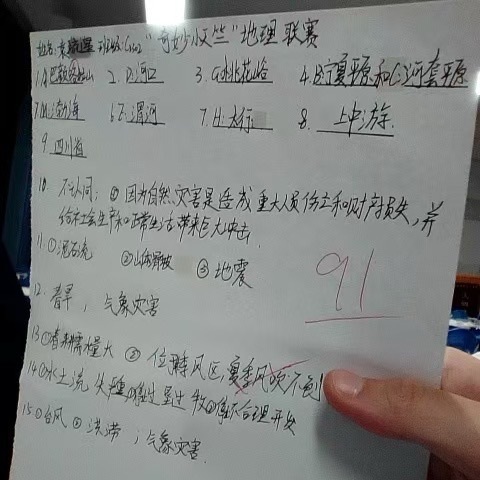 姓名: 班级: "奇妙小天竺"地理联赛
1.A巴颜喀拉山 2.D.河口 3.G.桃花峪 4.B.宁夏平原和C:河套平原
渤海 渭河 7.H:太行 8.上中游.
9 四川省
10. 不认同; ②因为自然灾害是造成重大人员伤亡和财产损失,并
给社会生产和正常生活带来巨大冲击.
11.①泥石流 ②山体滑坡 ③地震
12. 春旱, 气象灾害
13①春耕需水量大 ②位 风区,夏季风吹不到
14①水土流失 过度 不合理开发
15①台风 ②洪涝;气象灾害.
91